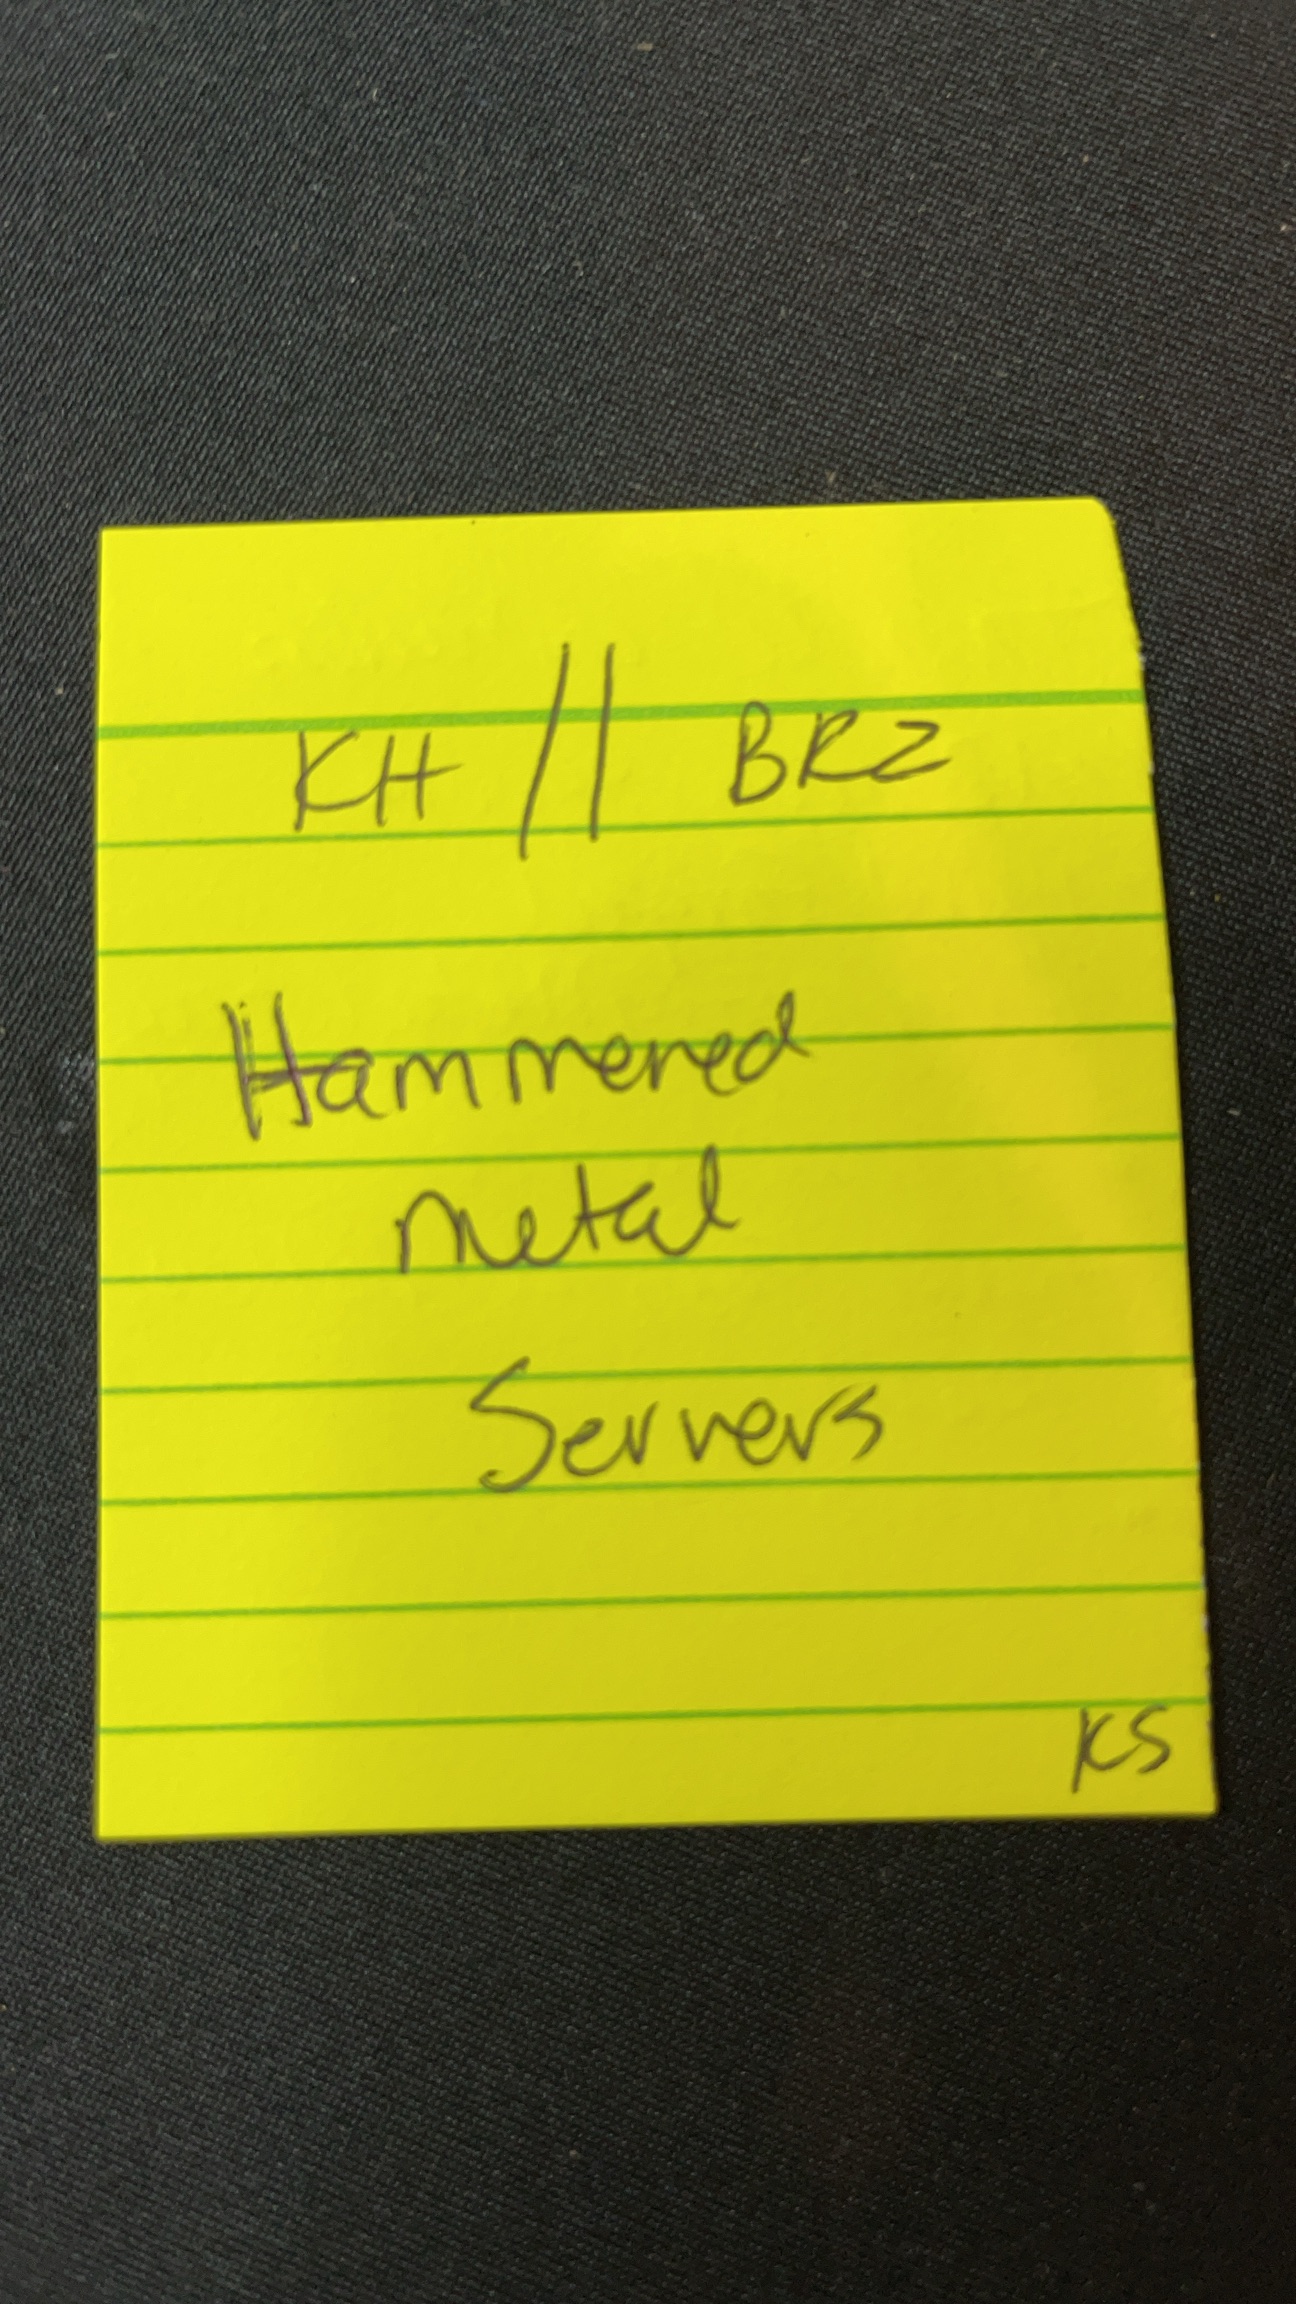 KH // BRZ
Hammered
metal
Servers
KS